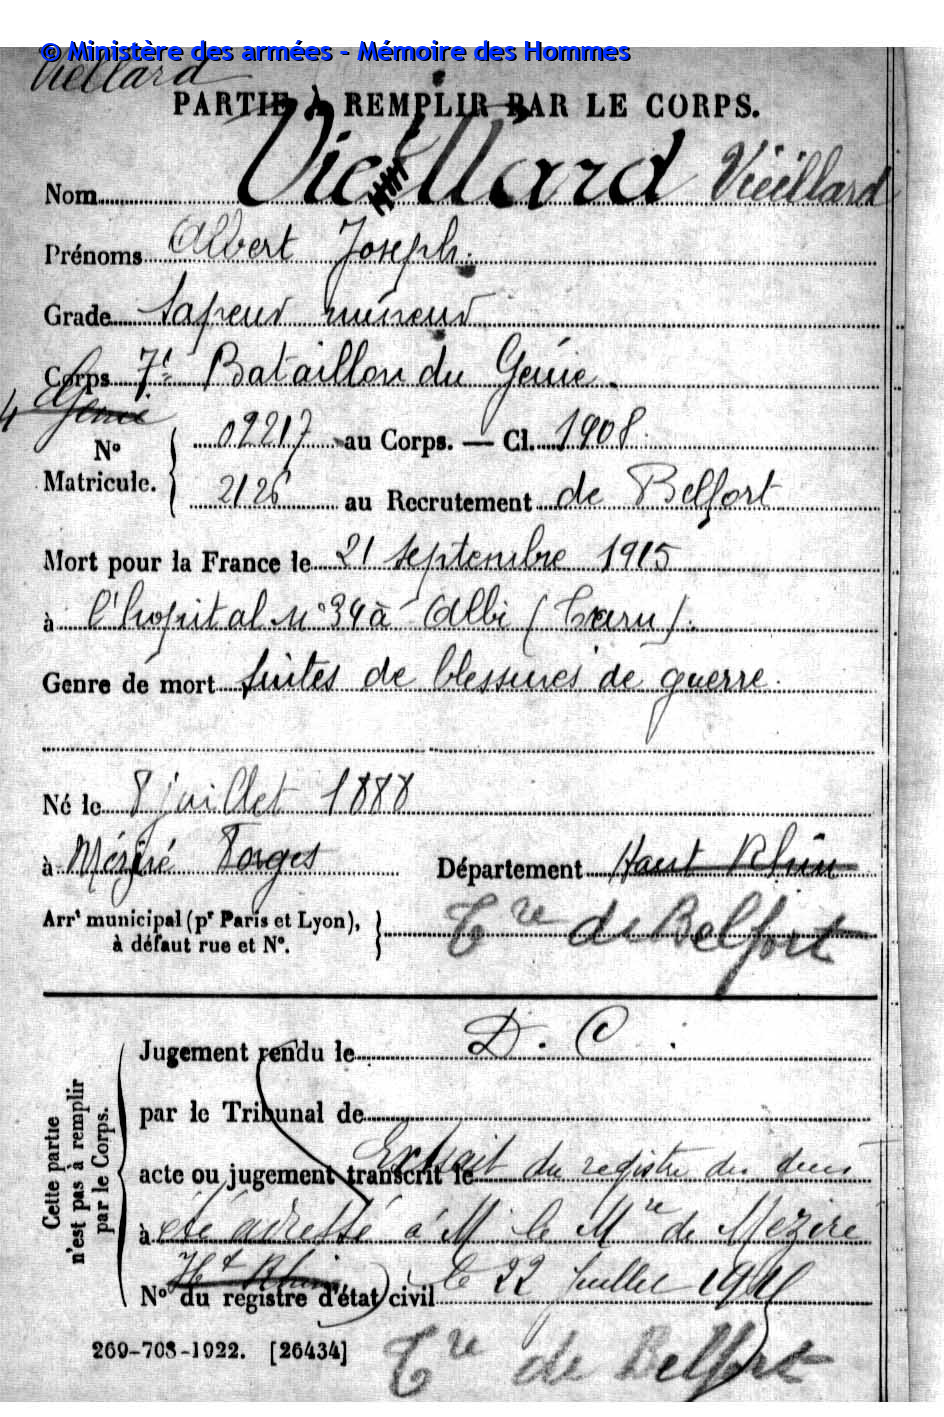 © Ministère des armées - Mémoire des Hommes
Viellard
PARTIE À REMPLIR PAR LE CORPS.
Nom Vieillard Vieillard
Prénoms Albert Joseph.
Grade Sapeur mineur
Corps 7e Bataillon du Génie.
4e Génie
No Matricule. 09217 au Corps. — Cl. 1908.
2126 au Recrutement de Belfort
Mort pour la France le 21 septembre 1915
à l'hopital n° 39 à Albi (Tarn).
Genre de mort suites de blessures de guerre.
Né le 8 juillet 1888
à Méziré Forges Département Haut Rhin
Arrt municipal (pr Paris et Lyon),
à défaut rue et N°.
Tre de Belfort
Cette partie
n'est pas à remplir
par le Corps.
Jugement rendu le D. C.
par le Tribunal de
acte ou jugement transcrit le Extrait du registre des décès
à été adressé à M le Mre de Mézire
Ht Rhin le 22 Juillet
N° du registre d'état civil
269-708-1922. [26434]
Tre de Belfort